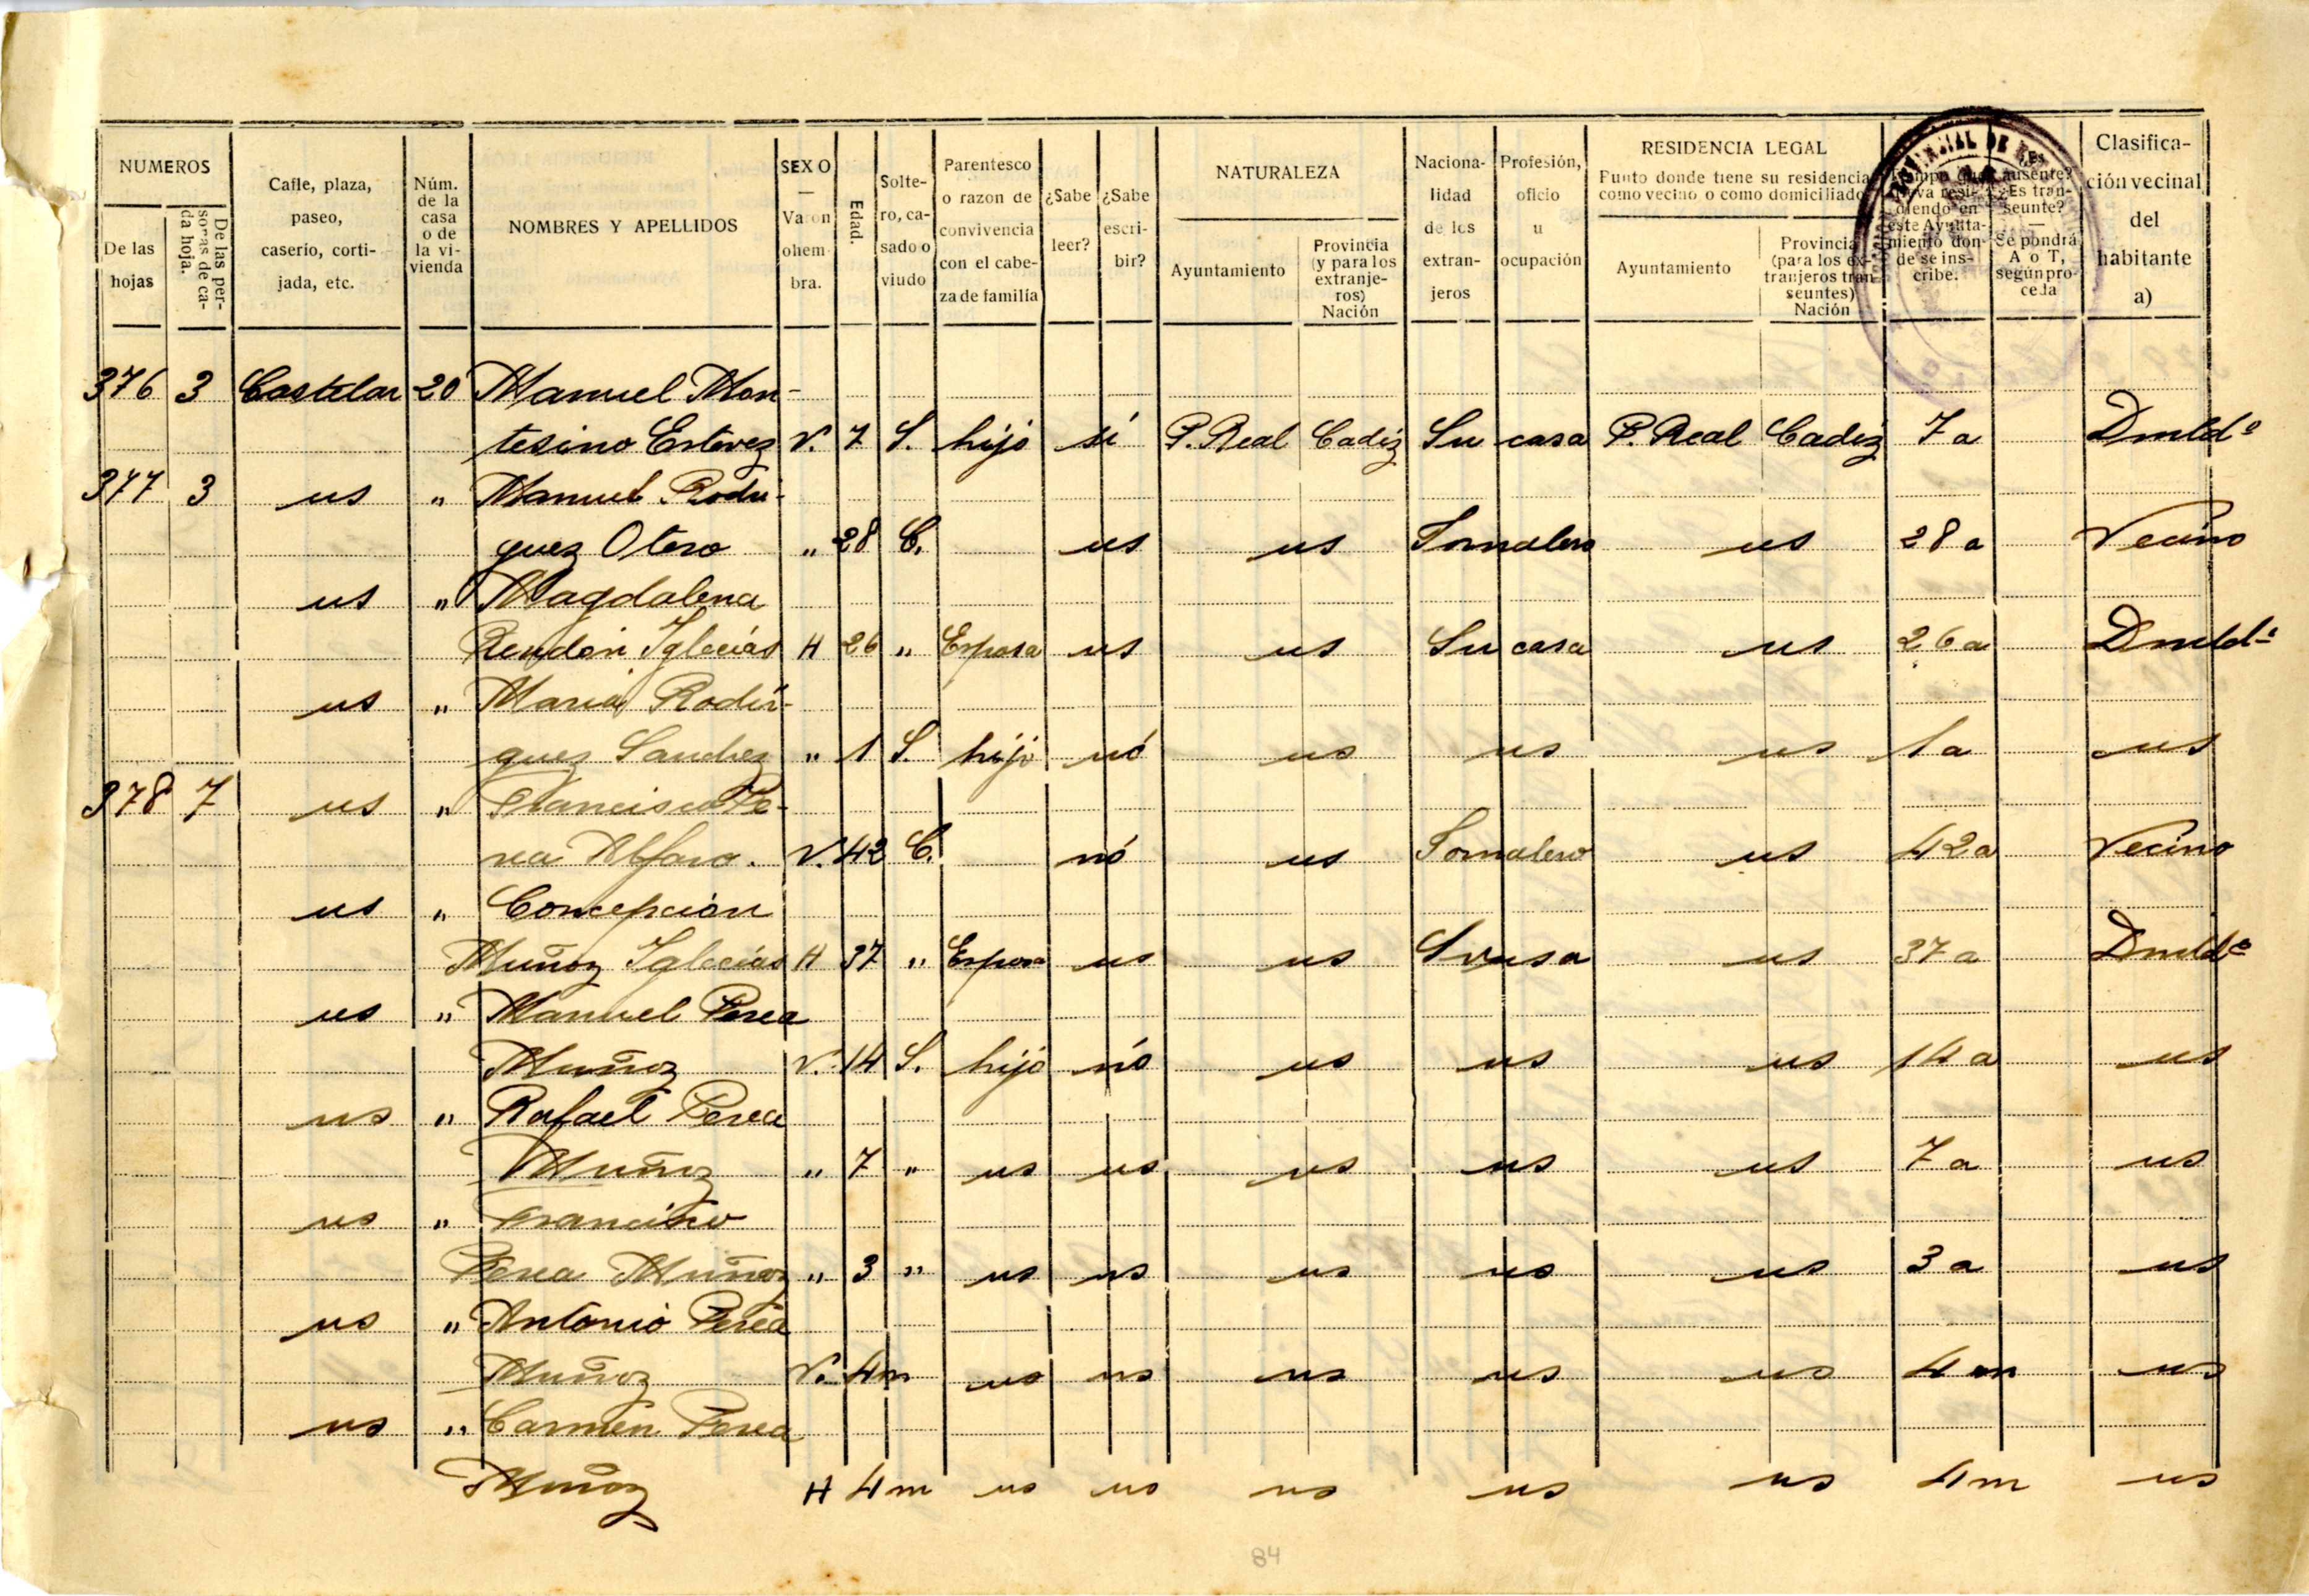 NUMEROS
De las hojas
De las personas de cada hoja.
Calle, plaza, paseo, caserio, cortijada, etc.
Núm. de la casa o de la vivienda
NOMBRES Y APELLIDOS
SEXO — Varon o hembra.
Edad.
Soltero, casado o viudo
Parentesco o razon de convivencia con el cabeza de familia
¿Sabe leer?
¿Sabe escribir?
NATURALEZA
Ayuntamiento
Provincia (y para los extranjeros) Nación
Nacionalidad de los extranjeros
Profesión, oficio u ocupación
RESIDENCIA LEGAL
Punto donde tiene su residencia como vecino o como domiciliado
Ayuntamiento
Provincia (para los extranjeros transeuntes) Nación
Tiempo que lleva residiendo en este Ayuntamiento donde se inscribe.
¿Es ausente? ¿Es transeunte? — Se pondrá A o T, según proceda
Clasificación vecinal del habitante a)
376 3 Castelar 20 Manuel Mon-
tesino Estevez V. 7 S. hijo sí P. Real Cadiz Su casa P. Real Cadiz 7 a Dmldº
377 3 us " Manuel Rodri-
guez Otero " 28 C. us us Jornalero us 28 a Vecino
us " Magdalena
Rendon Iglecias H 26 " Esposa us us Su casa us 26 a Dmldª
us " Maria Rodri-
guez Sanchez " 1 S. hijo nó us us us 1 a us
378 7 us " Francisco Pe-
rea Alfaro. V. 42 C. nó us Jornalero us 42 a Vecino
us " Concepcion
Muñoz Iglecias H 37 " Esposa us us Su casa us 37 a Dmldª
us " Manuel Perea
Muñoz V. 14 S. hijo nó us us us 14 a us
us " Rafael Perea
Muñoz " 7 " us us us us us 7 a us
us " Francisco
Perea Muñoz " 3 " us us us us us 3 a us
us " Antonio Perea
Muñoz V. 4 m us us us us us 4 m us
us " Carmen Perea
Muñoz H 4 m us us us us us 4 m us
84